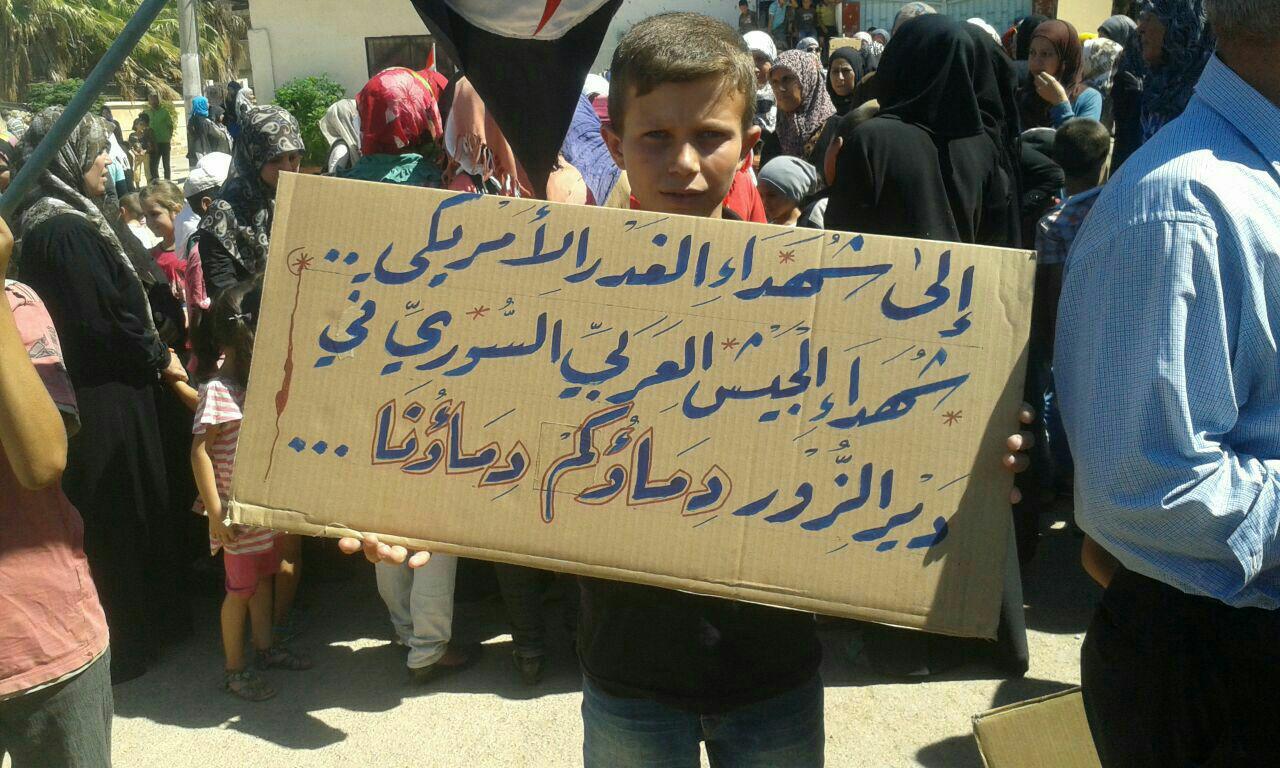 إلىٰ شُهَدَاءِ الغَدْرِ الأَمْرِيكي..
شُهَدَاءِ الْجَيْشِ العَرَبِيِّ السُّورِيِّ في
دَيْرِ الزُّوْرِ دِمَاؤُكُمْ دِمَاؤُنَا ...